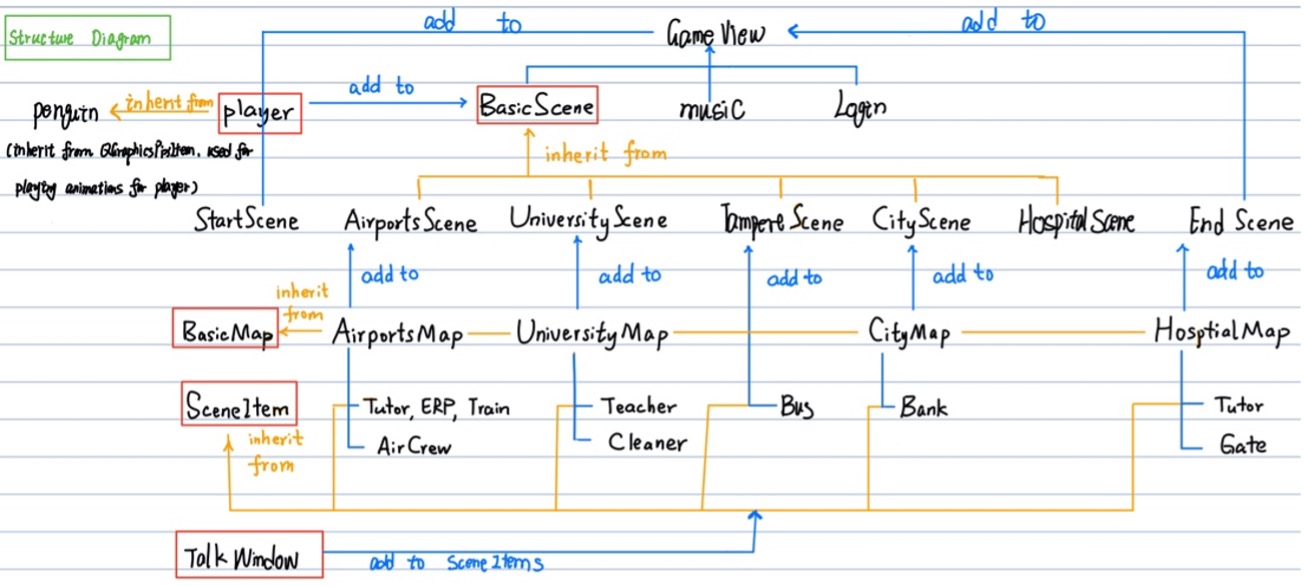 add to
add to
Structure Diagram
Game View
penguin
inherit from
player
add to
BasicScene
music
Login
(inherit from QGraphicsPixItem, used for
playing animations for player)
inherit from
StartScene
AirportsScene
UniversityScene
Tampere Scene
CityScene
Hospital Scene
End Scene
add to
add to
add to
add to
add to
inherit
from
BasicMap
AirportsMap
UniversityMap
CityMap
HosptialMap
SceneItem
Tutor, ERP, Train
Teacher
Bus
Bank
Tutor
inherit
from
AirCrew
Cleaner
Gate
Talk Window
add to SceneItems